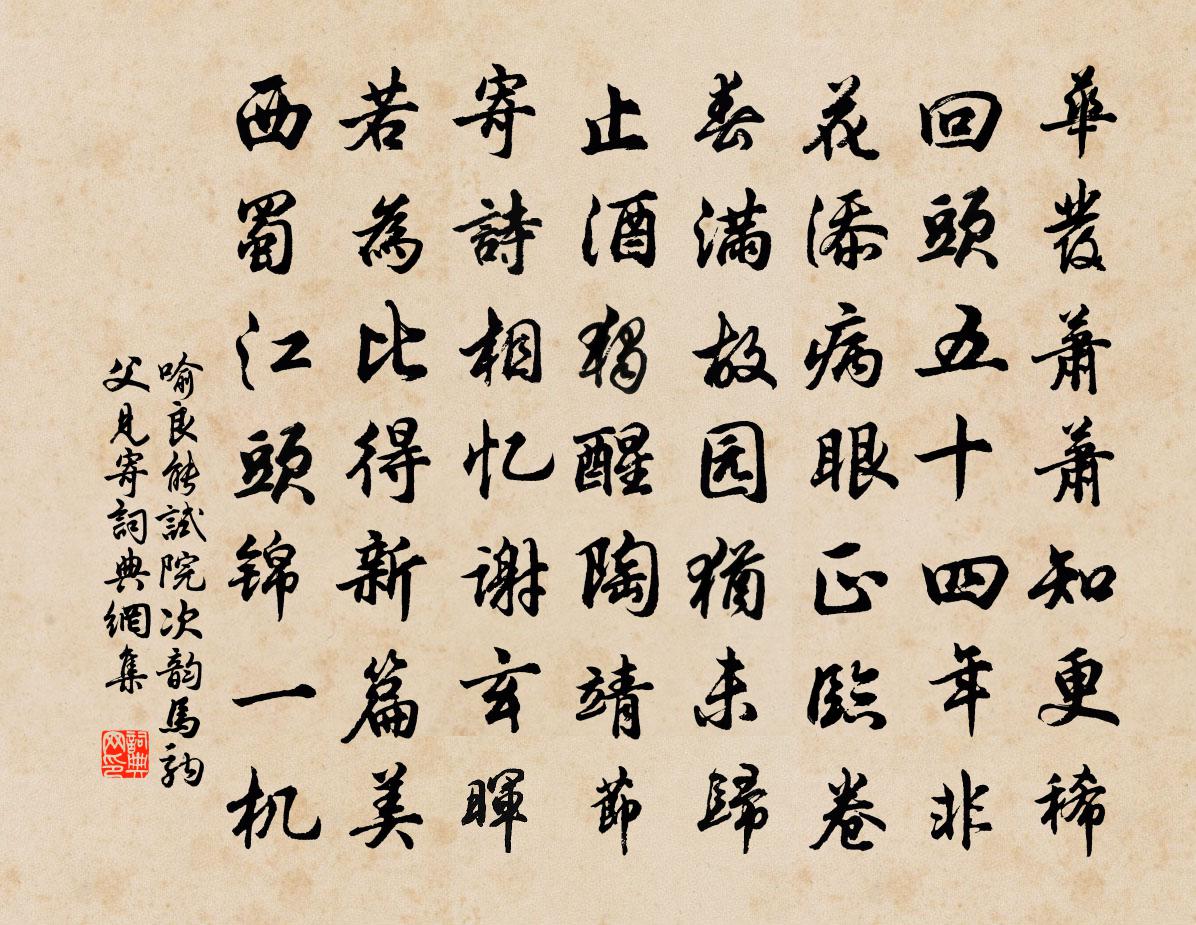 華發萧萧知更稀
回頭五十四年非
花添病眼正臨卷
春滿故园猶未歸
止酒獨醒陶靖節
寄詩相忆谢玄暉
若為比得新篇美
西蜀江頭锦一机
喻良能試院次韵馬駒
父見寄詞典網集
詞典网印